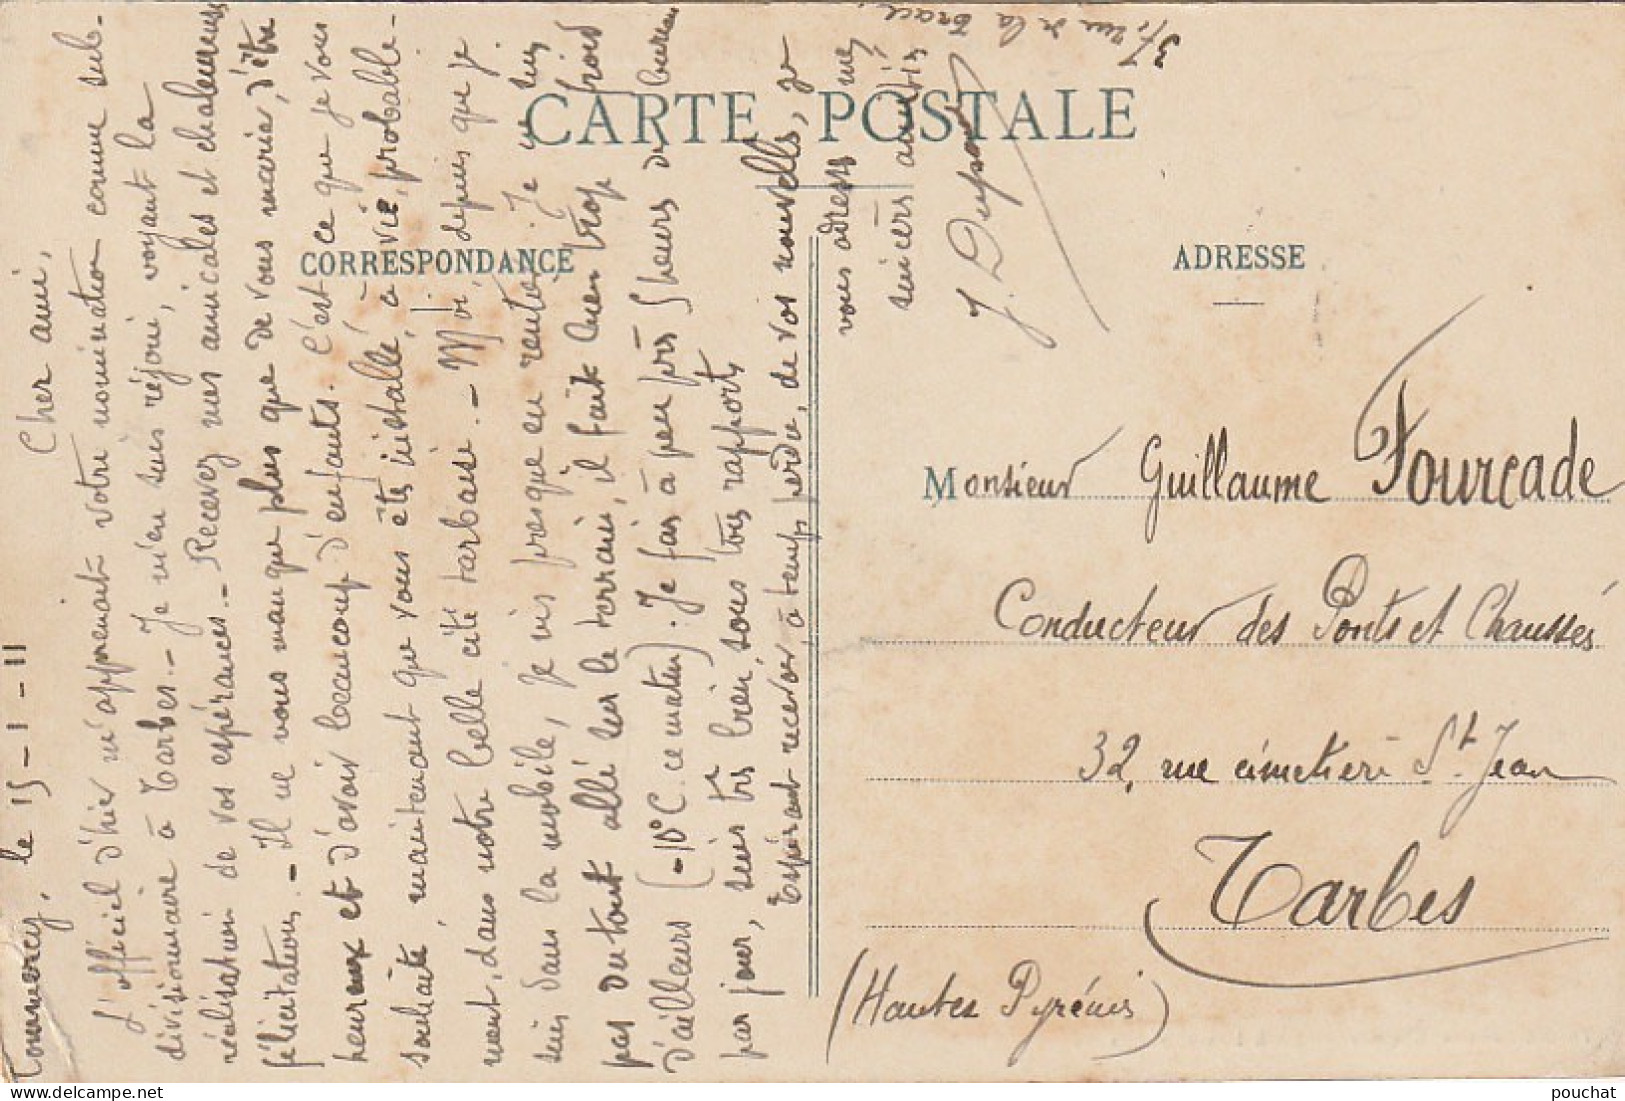 CARTE POSTALE
CORRESPONDANCE
Commercy, le 15-1-11
Cher ami,
L'officiel d'hier m'apprenait votre nomination comme sub-
divisionnaire à Tarbes. - Je m'en suis réjoui, voyant la
réalisation de vos espérances. - Recevez mes amicales et chaleureuses
félicitations. - Il ne vous manque plus que de vous marier, d'être
heureux et d'avoir beaucoup d'enfants. C'est ce que je vous
souhaite, maintenant que vous êtes installé, à vie, probable-
ment, dans notre belle cité tarbaise. - Moi, depuis que je
suis dans la mobile, je vis presque en rentier. Je ne suis
pas du tout allé sur le terrain, il fait bien trop froid
d'ailleurs (-10° C. ce matin). Je fais à peu près 5 heures de bureau
par jour, suis très bien, sous tous rapports
Espérant recevoir à temps perdu, de vos nouvelles, je
vous adresse mes
sincères amitiés
J. Dupont
37, rue de la
ADRESSE
Monsieur Guillaume Fourcade
Conducteur des Ponts et Chaussés
32, rue cimetière St. Jean
Tarbes
(Hautes Pyrénées)
pouchat